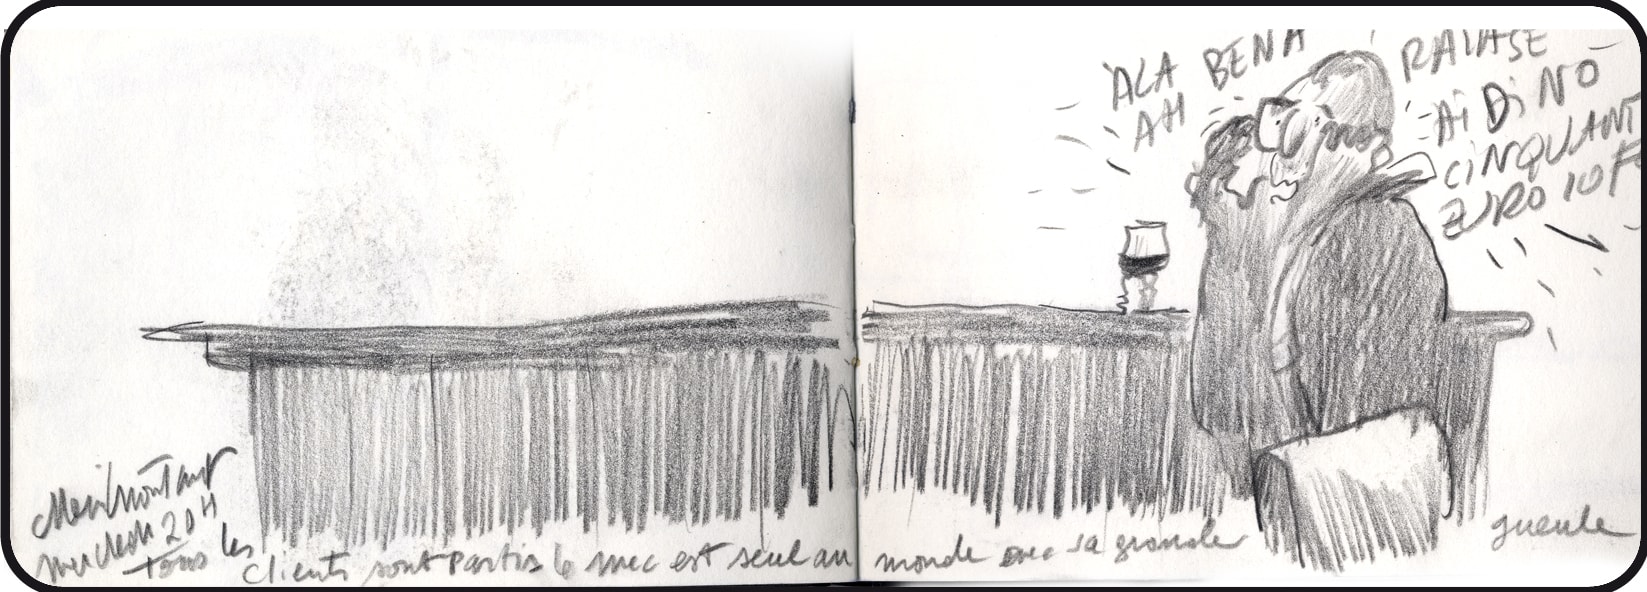 ALA BENA
AH
RAIASE
AI DI NO
CINQUANT
ZURO 10 F
Menilmontant
mercredi 20H
tous les
clients sont partis le mec est seul au monde avec sa grande gueule